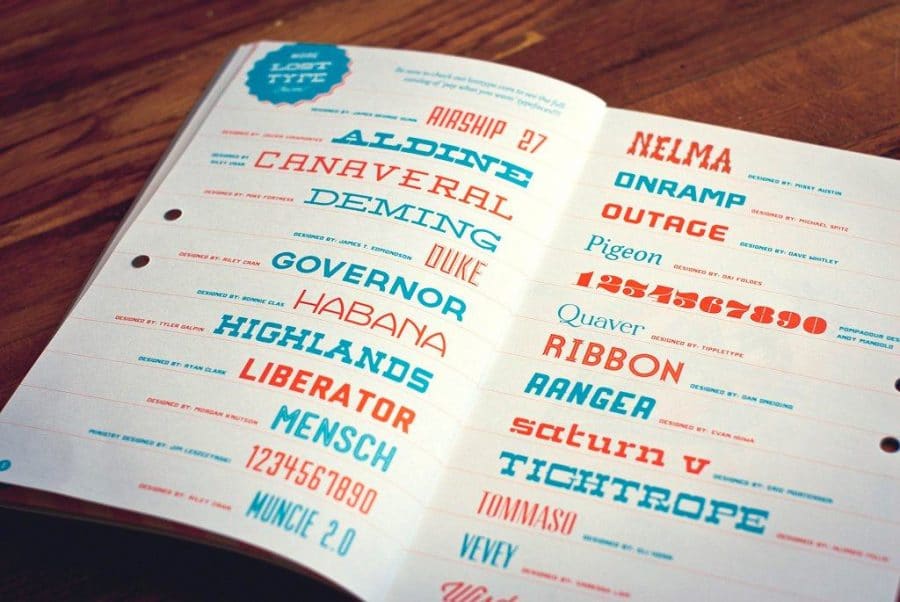 MORE
LOST
TYPE
Be sure to check out losttype.com to see the full
catalog of 'pay what you want' typefaces!!!
DESIGNED BY: JAMES GEORGE DUNN AIRSHIP 27
DESIGNED BY: JULIEN ALDINE
DESIGNED BY RILEY CRAN CANAVERAL
DESIGNED BY: MIKE FORTRESS DEMING
DESIGNED BY: JAMES T. EDMONDSON DUKE
DESIGNED BY: RILEY CRAN GOVERNOR
DESIGNED BY: BONNIE CLAS HABANA
DESIGNED BY: TYLER GALPIN HIGHLANDS
DESIGNED BY: RYAN CLARK LIBERATOR
DESIGNED BY: MORGAN KNUTSON MENSCH
MINISTRY DESIGNED BY: JIM LESZCZYNSKI 1234567890
DESIGNED BY: RILEY CRAN MUNCIE 2.0
NELMA DESIGNED BY: MIKEY AUSTIN
ONRAMP DESIGNED BY: MICHAEL SPITZ
OUTAGE DESIGNED BY: DAVE WHITLEY
Pigeon DESIGNED BY: ORI FOLDES
1234567890 POMPADOUR DES
ANDY MANGOLD
Quaver DESIGNED BY: TIPPLETYPE
RIBBON DESIGNED BY: DAN GNEIDING
RANGER DESIGNED BY: EVAN HUWA
saturn v DESIGNED BY: ERIC MORTENSEN
TIGHTROPE DESIGNED BY:
TOMMASO DESIGNED BY: ELI HORN
VEVEY DESIGNED BY: VANESSA LAM